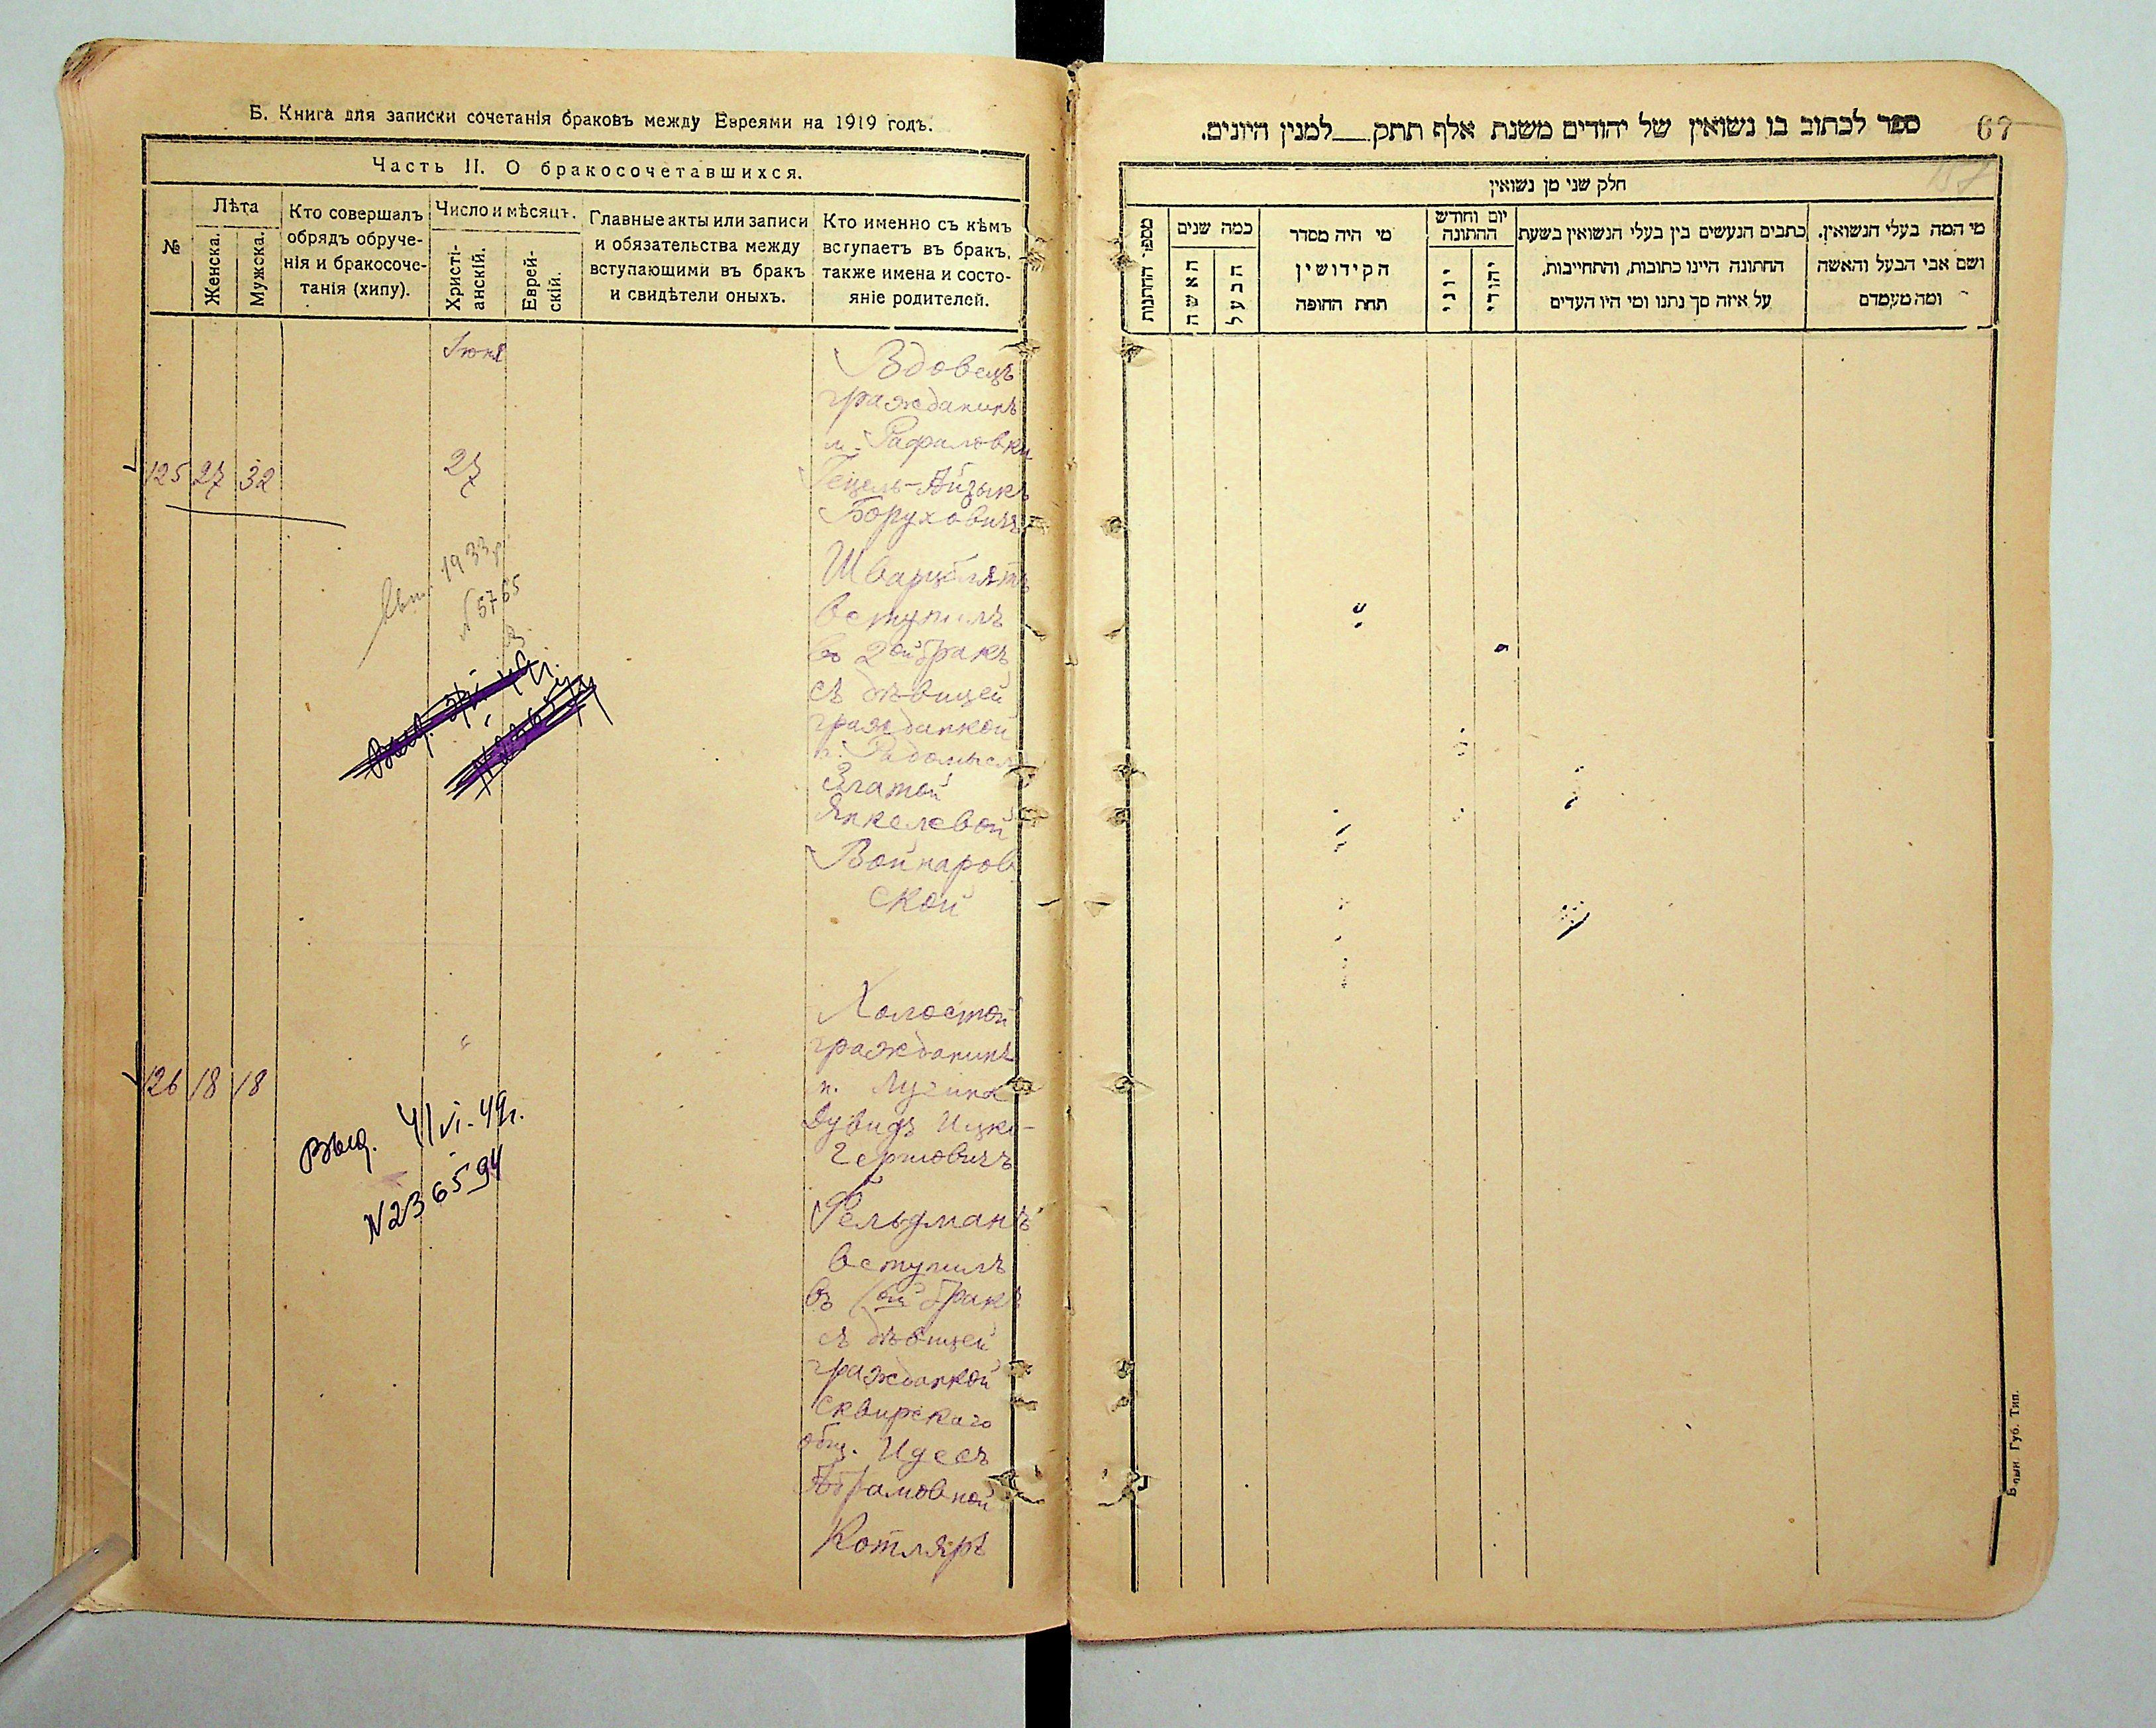 Б. Книга для записки сочетанія браковъ между Евреями на 1919 годъ.
Часть II. О бракосочетавшихся.
№
Лѣта
Женска.
Мужска.
Кто совершалъ
обрядъ обруче-
нія и бракосоче-
танія (хипу).
Число и мѣсяцъ.
Христі-
анскій.
Еврей-
скій.
Главные акты или записи
и обязательства между
вступающими въ бракъ
и свидѣтели оныхъ.
Кто именно съ кѣмъ
вступаетъ въ бракъ,
также имена и состо-
яніе родителей.
Іюня
125 27 32
27
Вдовецъ
гражданинъ
м. Рафаловки
Гецель-Айзыкъ
Боруховичъ
Шварцблятъ
вступилъ
въ 2ой бракъ
съ дѣвицей
гражданкой
г. Радомысл
Златой
Янкелевой
Войнаров
ской
1933 г.
№ 5765
126 18 18
"
Выд. 4/VI-49г.
N236594
Холостой
гражданинъ
м. Лугина
Дувидъ Ицко-
Гершовичъ
Фельдманъ
вступилъ
въ 1ой бракъ
съ дѣвицей
гражданкой
Сквирскаго
общ. Идесъ
Абрамовной
Котляръ
67
ספר לכתוב בו נשואין של יהודים משנת אלף תתק___למנין היונים.
חלק שני מן נשואין
מי המה בעלי הנשואין.
ושם אבי הבעל והאשה
ומה מעמדם
כתבים הנעשים בין בעלי הנשואין בשעת
החתונה היינו כתובות, והתחייבות,
על איזה סך נתנו ומי היו העדים
יום וחודש
ההתונה
יהודי
יוני
מי היה מסדר
הקידושין
תחת החופה
כמה שנים
הבעל
האשה
מספר החתונות
Губ. Тип.